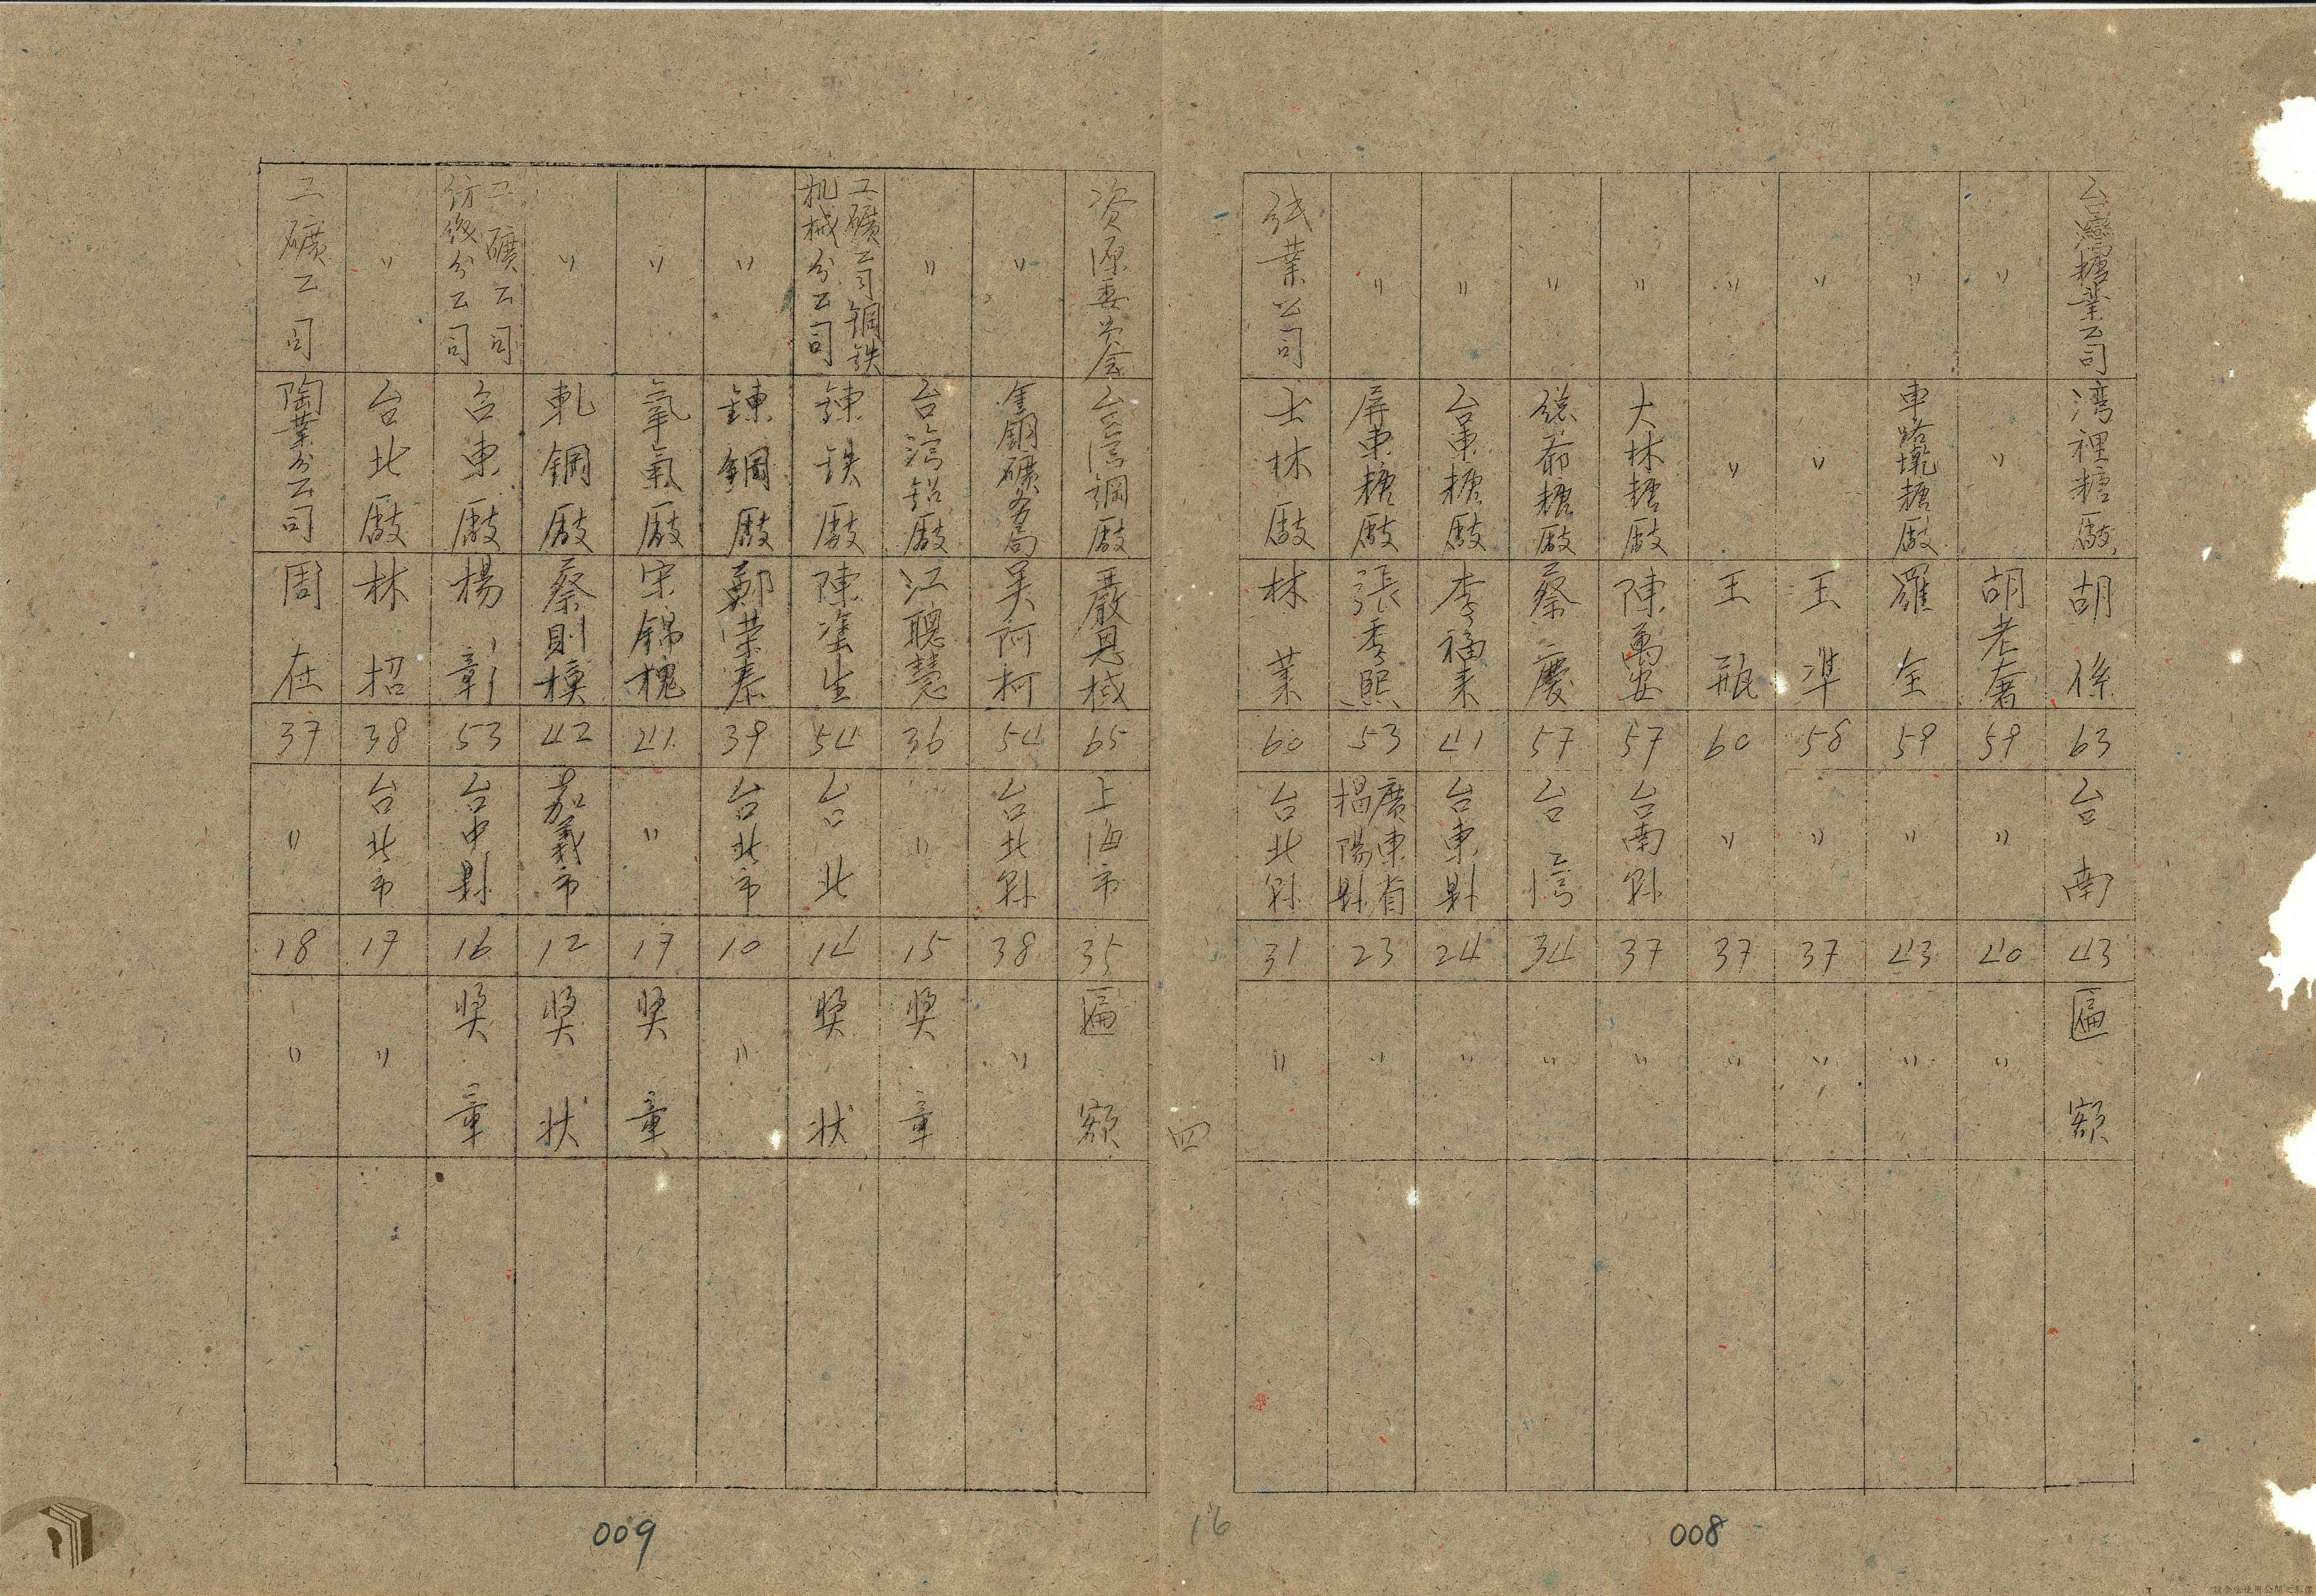 台灣糖業公司 湾裡糖廠 胡係 63 台南 43 匾額
〃 〃 胡老奢 59 〃 40 〃
〃 車路墘糖廠 羅全 59 〃 43 〃
〃 〃 王準 58 〃 37 〃
〃 〃 王瓶 60 〃 37 〃
〃 大林糖廠 陳萬出 57 台南縣 37 〃
〃 總爺糖廠 蔡慶 57 台湾 34 〃
〃 台東糖廠 李福来 41 台東縣 24 〃
〃 屏東糖廠 張季熙 53 廣東省揭陽縣 23 〃
紙業公司 士林廠 林葉 60 台北縣 31 〃
008
四
16
资源委員会 台湾鋼廠 嚴恩棫 65 上海市 35 匾額
〃 金銅礦务局 吴阿柯 54 台北縣 38 〃
〃 台湾铝廠 江聰慧 36 〃 15 奖章
工礦公司鋼铁机械分公司 鍊铁廠 陳塗生 54 台北 14 奖状
〃 鍊鋼廠 鄭荣泰 39 台北市 10 〃
〃 氧氣廠 宋錦槐 41 〃 17 奖章
〃 軋鋼廠 蔡則模 42 嘉義市 12 奖状
工礦公司紡织分公司 台東廠 楊彰 53 台中縣 16 奖章
〃 台北廠 林招 38 台北市 17 〃
工礦公司 陶業分公司 周在 37 〃 18 〃
009